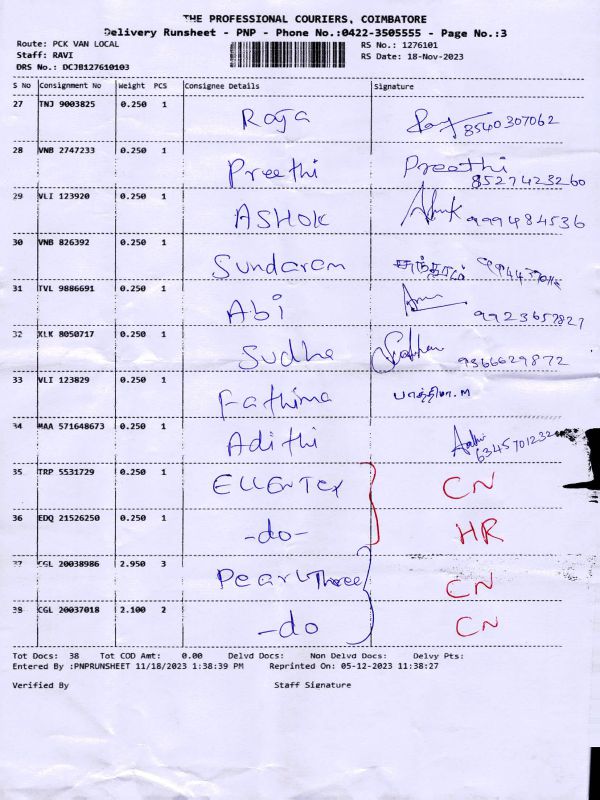 THE PROFESSIONAL COURIERS, COIMBATORE
Delivery Runsheet - PNP - Phone No.:0422-3505555 - Page No.:3
Route: PCK VAN LOCAL RS No.: 1276101
Staff: RAVI RS Date: 18-Nov-2023
DRS No.: DCJB127610103
S No Consignment No Weight PCS Consignee Details Signature
27 TNJ 9003825 0.250 1 Raja 8540307062
28 VNB 2747233 0.250 1 Preethi Preethi 8527423260
29 VLI 123920 0.250 1 ASHOK 999484536
30 VNB 826392 0.250 1 Sundaram
31 TVL 9886691 0.250 1 Abi 9923657827
32 XLK 8050717 0.250 1 Sudha 9366629872
33 VLI 123829 0.250 1 Fathima பாத்திமா.M
34 MAA 571648673 0.250 1 Adithi 6345701232
35 TRP 5531729 0.250 1 EllenTex CN
36 EDQ 21526250 0.250 1 -do- HR
37 CGL 20038986 2.950 3 Pearl Three CN
38 CGL 20037018 2.100 2 -do CN
Tot Docs: 38 Tot COD Amt: 0.00 Delvd Docs: Non Delvd Docs: Delvy Pts:
Entered By :PNPRUNSHEET 11/18/2023 1:38:39 PM Reprinted On: 05-12-2023 11:38:27
Verified By Staff Signature